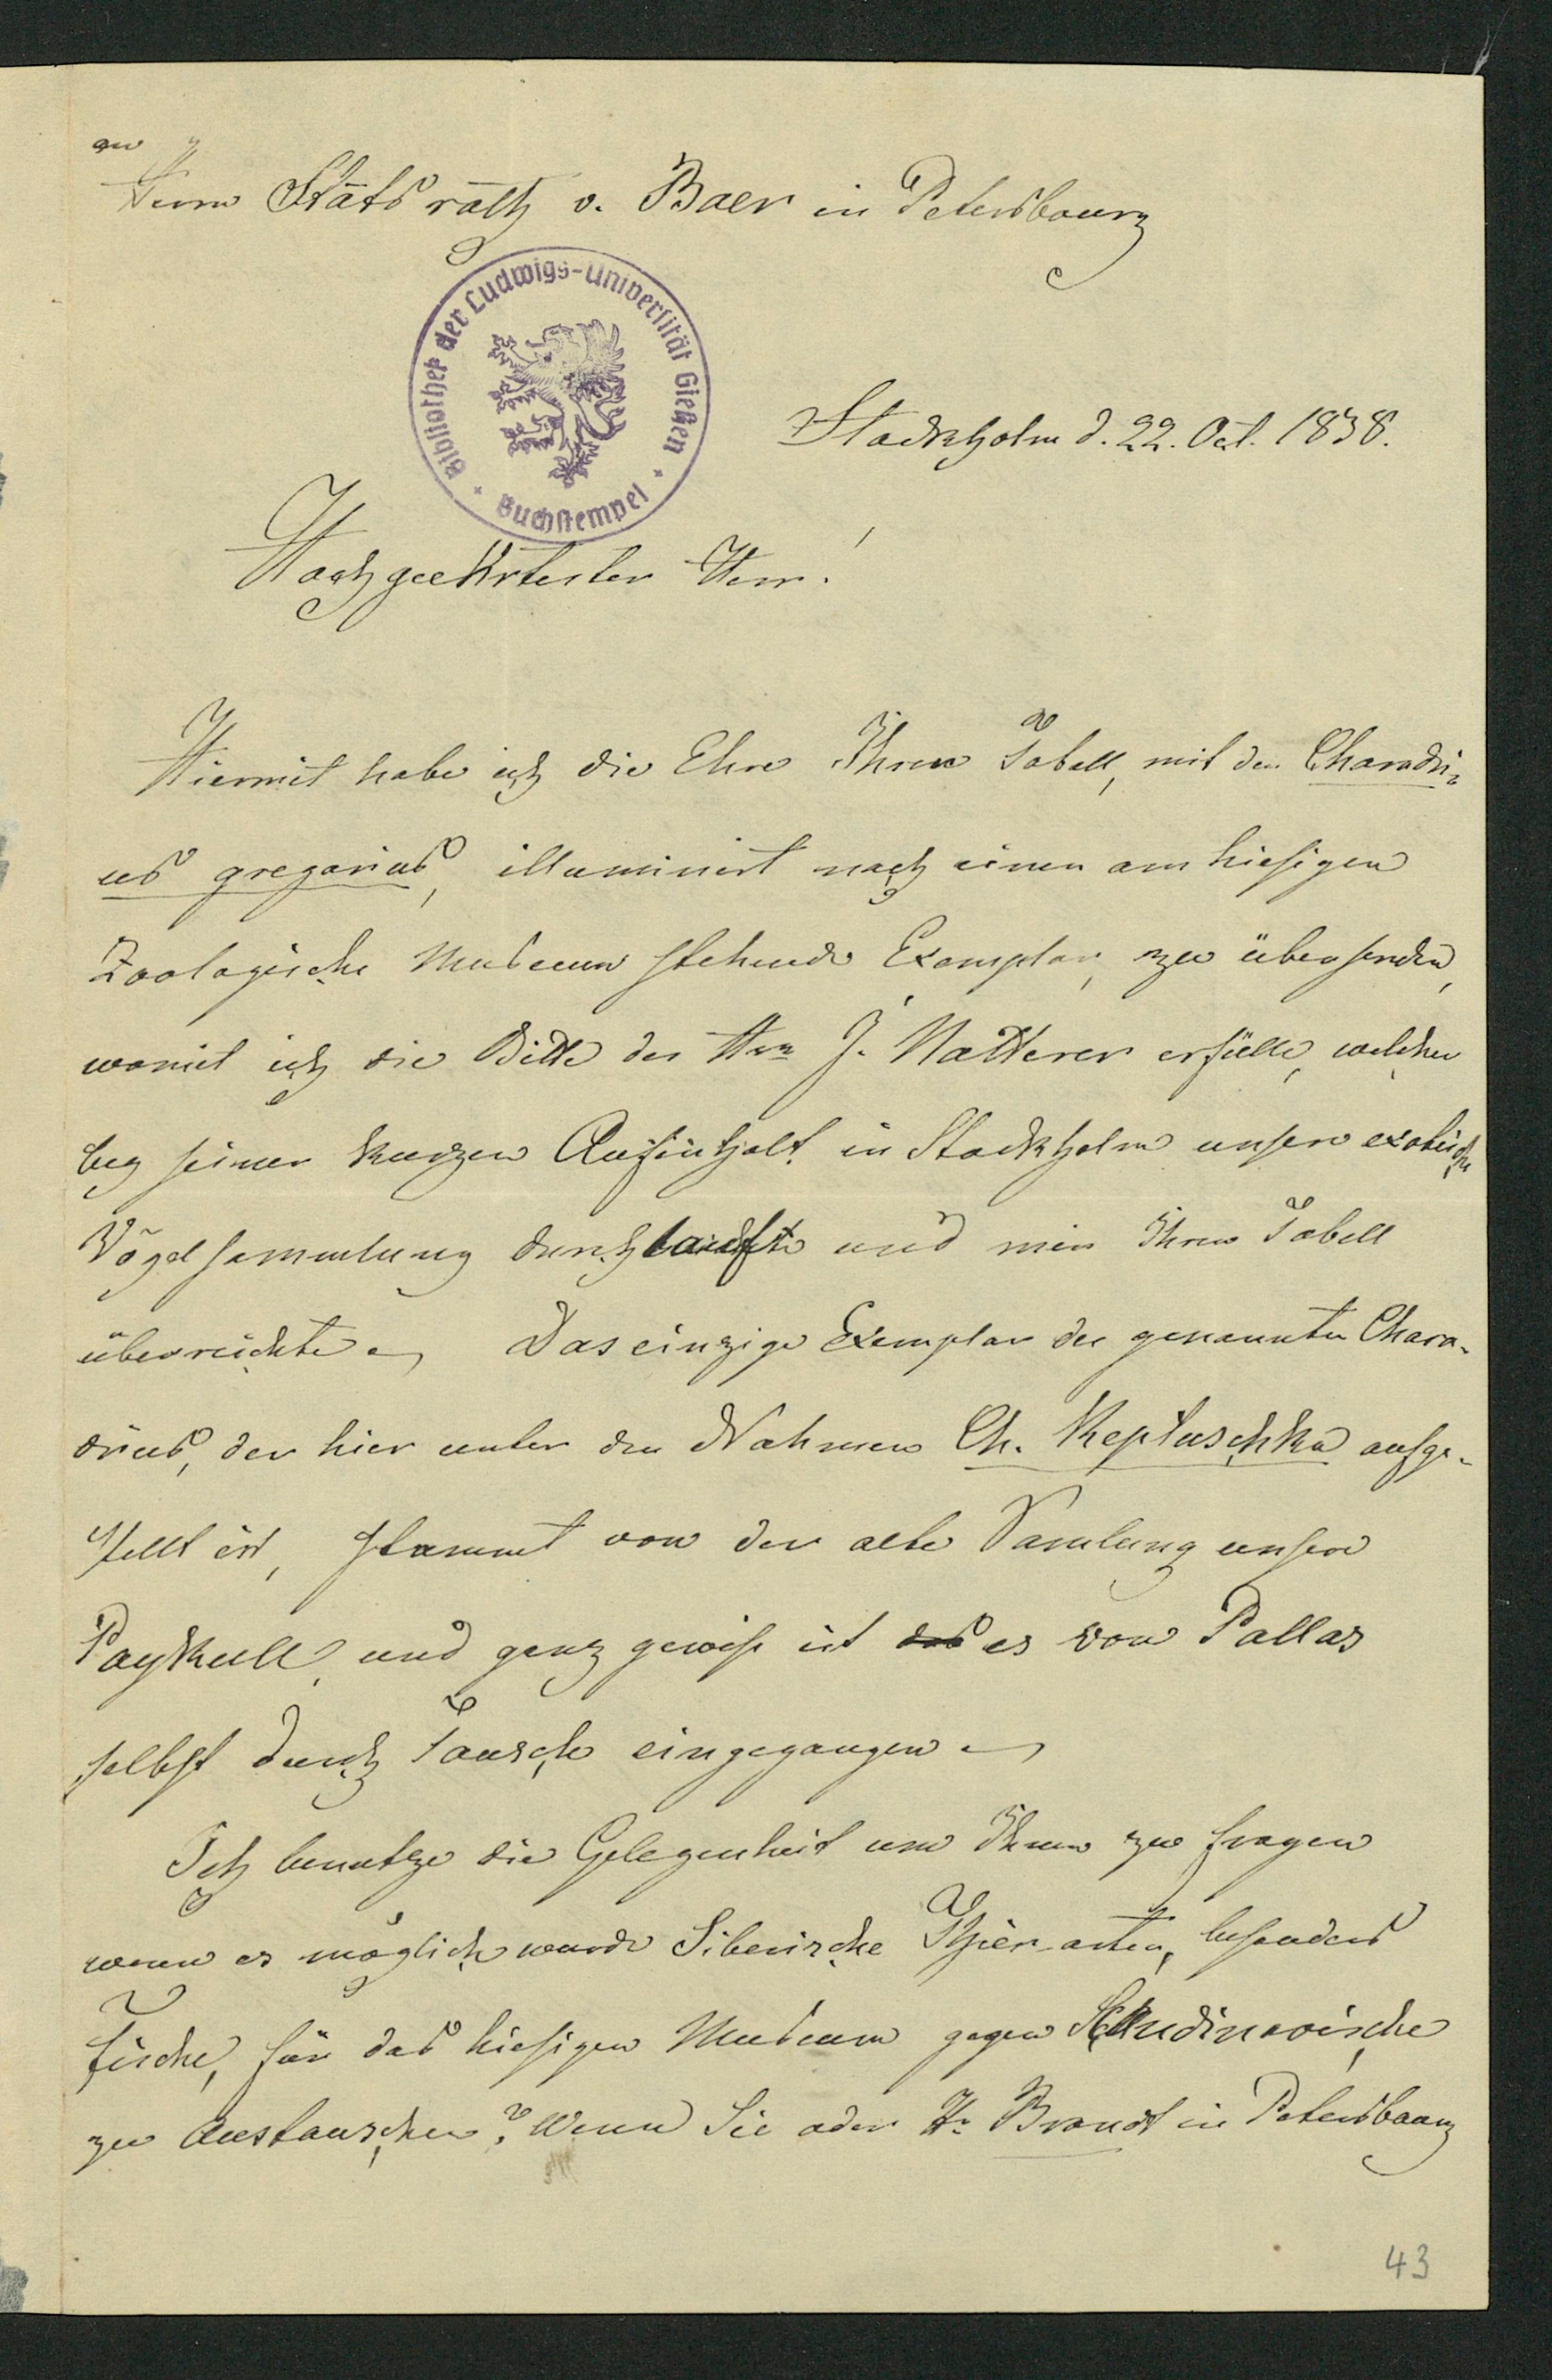 an
Herrn Stätsräth v. Baer in Petersbourg
Bibliothek der Ludwigs-Universität Gießen
Buchstempel
Stockholm d. 22. Oct. 1838.
Hochgeehrtester Herr!
Hiermit habe ich die Ehre Ihren Tabell, mit den Charadri-
us gregarius, illuminirt nach einen am hiesigen
Zoologische Museum stehende Exemplar, zu übersenden,
womit ich die Bitte des Hrn J. Natterer erfülle, welcher
bey seiner kurzen Aufenthalt in Stockholm unsere exotische
Vögelsammlung durchlaufte und mir Ihren Tabell
überreichte. Das einzige Exemplar der genannten Chara-
drius, der hier unter den Nahmen Ch. Keptuschka aufge-
stellt ist, stammt von der alte Samlung unsere
Paykull, und ganz gewiss ist das es von Pallas
selbst durch Tausche eingegangen.
Ich benutze die Gelegenheit um Ihnen zu fragen
wenn es möglich wurde Siberische Thier-arten, besonders
Fische, für das hiesigen Museum gegen Scandinavische
zu austauschen? Wenn Sie oder Hr Brandt in Petersbourg
43